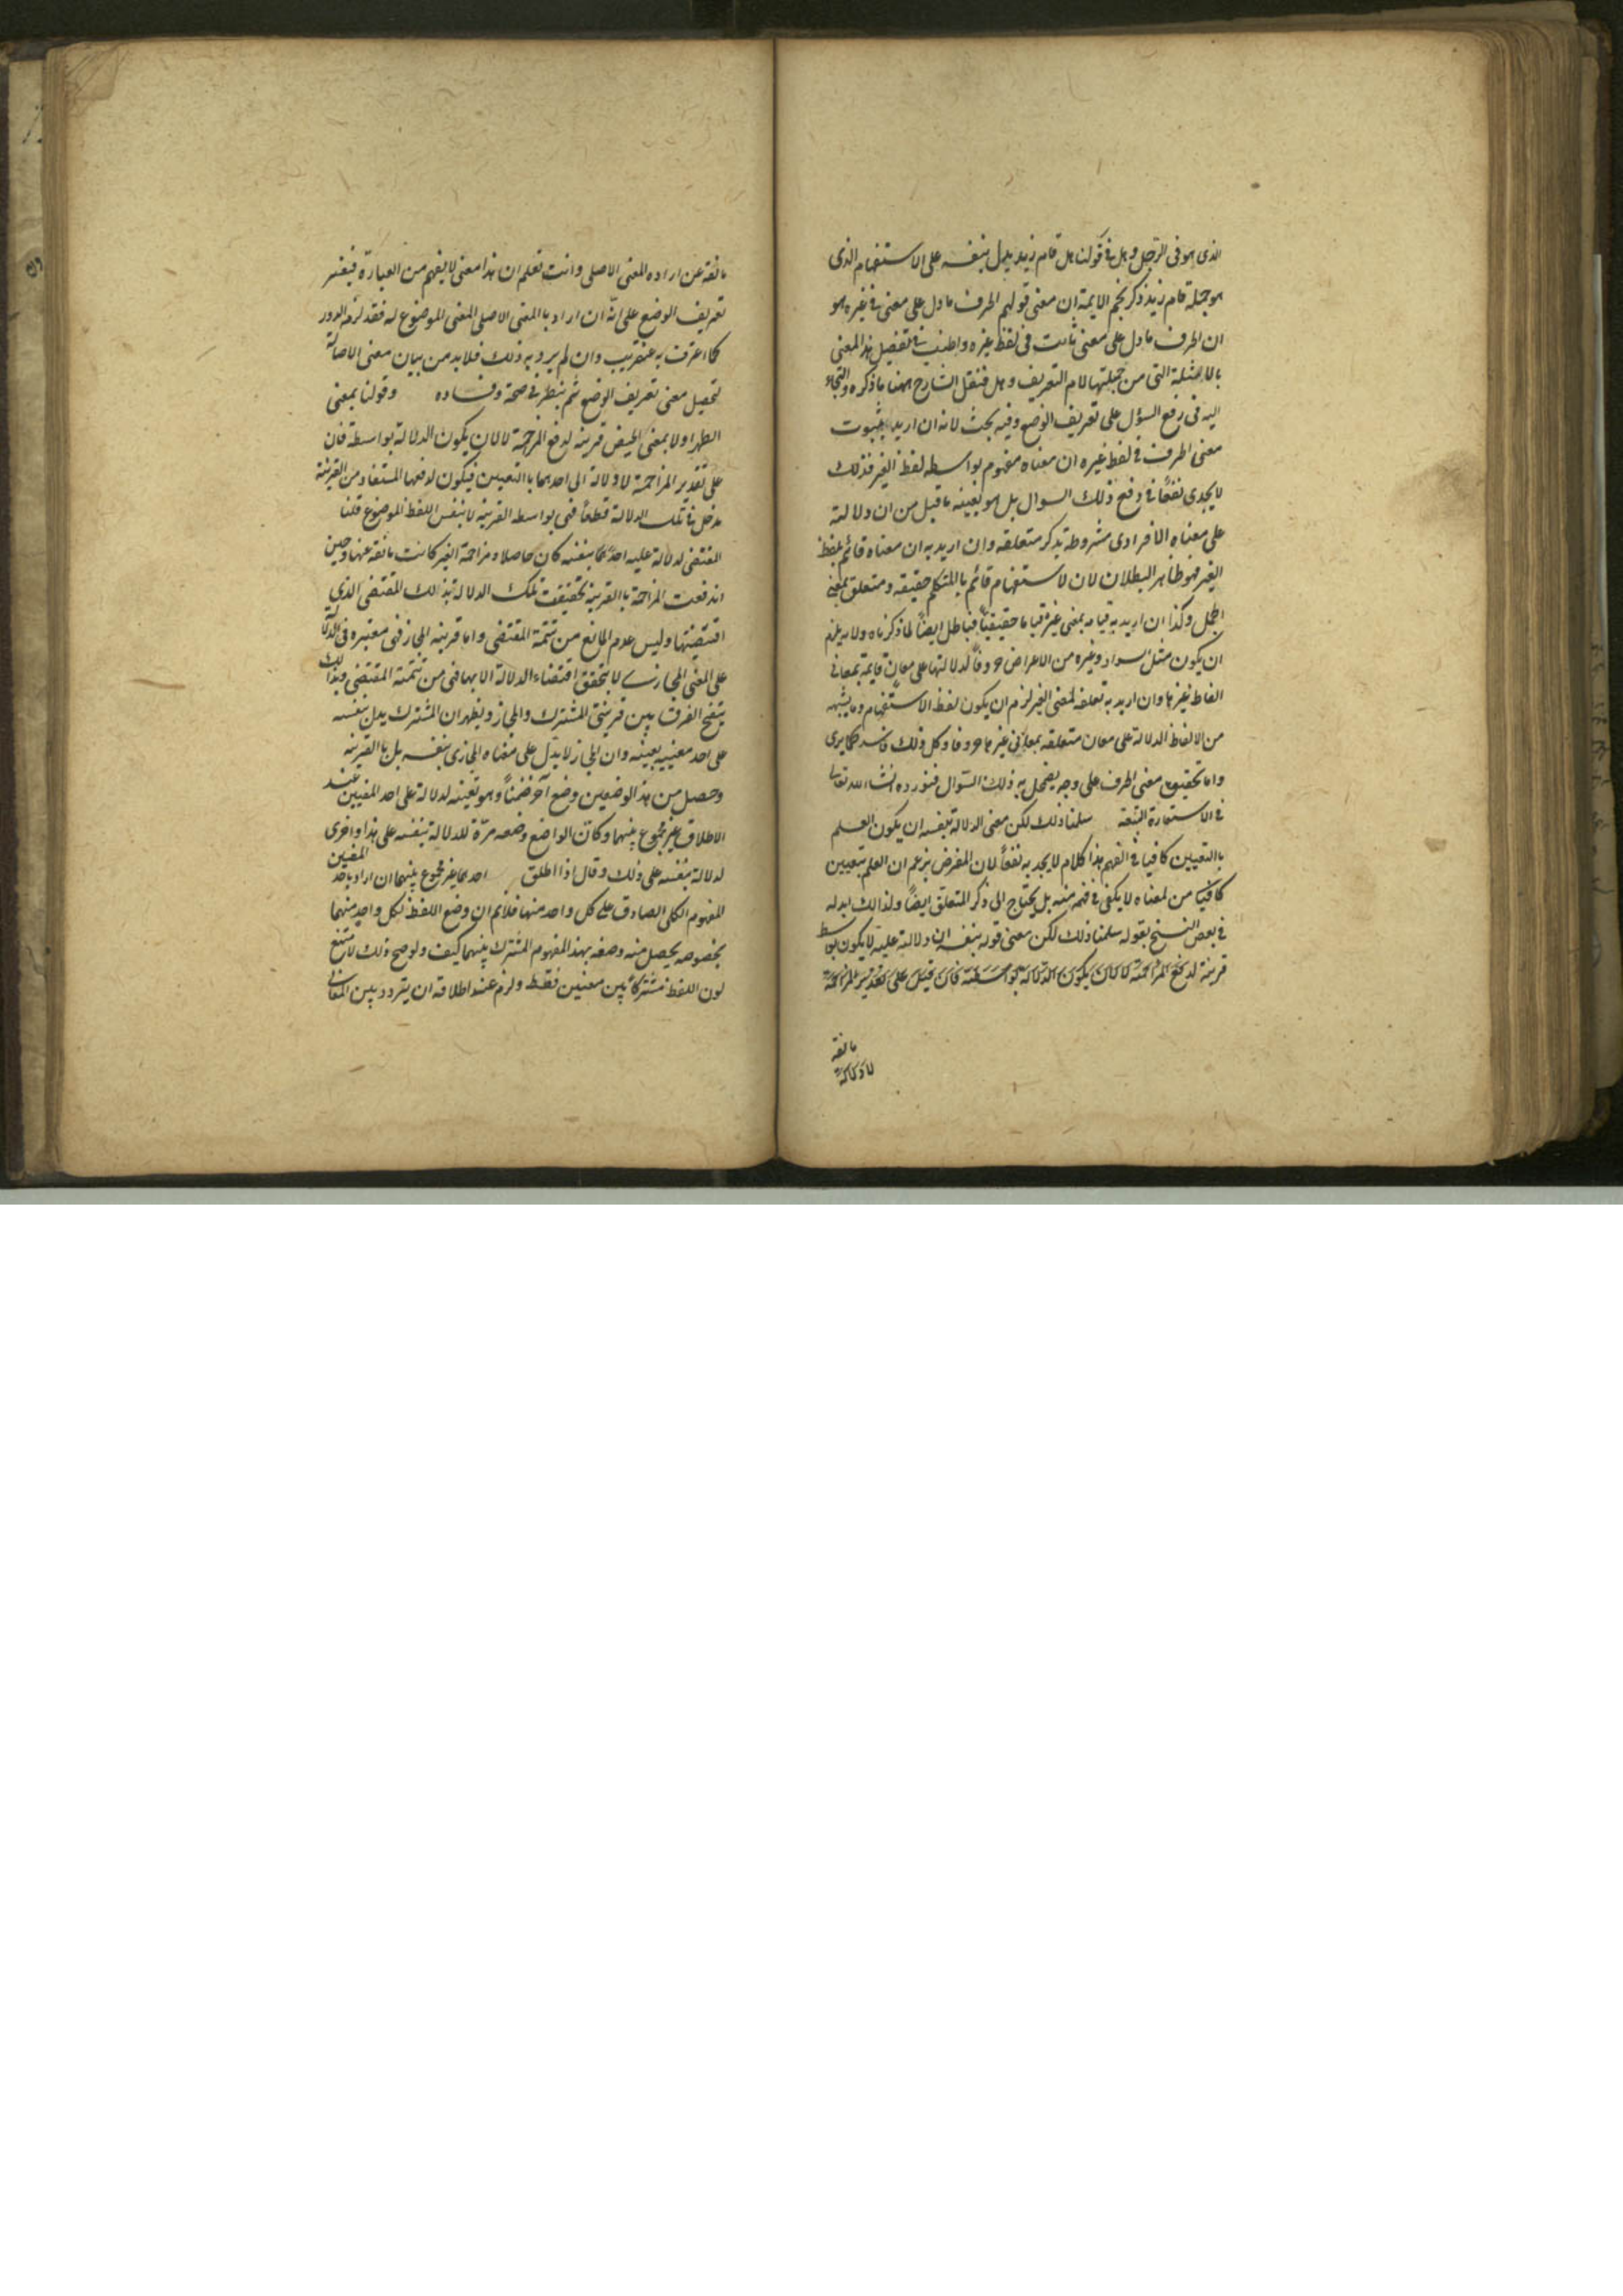 الذى هو فى الرجل وهل فى قولنا هل قام زيد يدل بنفسه على الاستفهام الذى
هو جملة قام زيد ذكر نجم الايمة ان معنى قولهم الحرف ما دل على معنى فى غيره هو
ان الحرف ما دل على معنى ثابت فى لفظ غيره واطنب فى تفصيل هذا المعنى
بالامثلة التى من جملتها لام التعريف وهل فنقل الشارح ههنا ما ذكره والتجاء
اليه فى رفع السؤل على تعريف الوضع وفيه بحث لانه ان اريد بثبوت
معنى الحرف فى لفظ غيره ان معناه مفهوم بواسطه لفظ الغير فذلك
لا يجدى نفعًا فى دفع ذلك السوال بل هو بعينه ما قيل من ان دلالته
على معناه الافرادى مشروطة بذكر متعلقه وان اريد به ان معناه قائم بلفظ
الغير فهو ظاهر البطلان لان لاستفهام قائم بالمتكلم حقيقه ومتعلق بمعنى
الجمل وكذا ان اريد به قيامه بمعنى غيره قياما حقيقيًا فباطل ايضًا لما ذكرناه ولانه يلزم
ان يكون مثل سواد وغيره من الاعراض حروفًا لدلالتها على معانٍ قايمة بمعانى
الفاظ غيرها وان اريد به تعلقه لمعنى الغير لزم ان يكون لفظ الاستفهام وما يشبهه
من الالفاظ الدالة على معان متعلقه بمعانى غيرها حروفا وكل ذلك فاسد كما يرى
واما تحقيق معنى الحرف على وجه يضمحل به ذلك السوال فنورده انشاء الله تعالى
فى الاستعارة التبعة سلمنا ذلك لكن معنى الدلالة بنفسه ان يكون العلم
باالتعيين كافيا فى الفهم هذا كلام لا يجديه نفعًا لان المعرض يزعم ان العلم بتعيين
كافيا من لمعناه لا يكفى فى فهمه منه بل يحتاج الى ذكر المتعلق ايضًا ولذالك ابدله
فى بعض النسخ بقوله سلمنا ذلك لكن معنى قوله بنفسه ان دلالته عليه لا يكون بواسط
قرينة لدفع المزاحمة لا لان يكون الدلالة بواسطة فان قيل على تقدير المزاحمة
مانعة
لا دلالة
مانعة عن ارادة المعنى الاصلى وانت تعلم ان هذا معنى لا يفهم من العبارة فيفسر
تعريف الوضع على انّه ان اراد باالمعنى الاصلى المعنى الموضوع له فقد لزم الدور
كما اعرفت به عنقريب وان لم يرد به ذلك فلا بد من بيان معنى الاصالة
لتحصيل معنى تعريف الوضع ثم ينظر فى صحة وفساده وقولنا بمعنى
الطهر او لا بمعنى الحيض قرينه لدفع المزاحمة لا لان يكون الدلالة بواسطة فان
على تقدير المزاحمة لا دلالة الى احدهما باالتعيين فيكون لدفعها المستفاد من القرينة
مدخل فى تلك الدلالة قطعاً فهى بواسطه القرينه لا بنفس اللفظ الموضوع قلنا
المقتضى لدلالة عليه احدهما بنفسه كان حاصلا ومزاحمة الغير كانت مانعة عنها وحين
اندفعت المزاحمة باالقرينة تحققت تلك الدلالة بذالك المقتضى الذى
اقتضيتها وليس عدم المانع من تتمة المقتضى واما قرينه المجاز فهى معتبره فى الدلالة
على المعنى المجازى لا يتحقق اقتضاء الدلالة الا بها فهى من تتمتة المقتضى وبذالك
يتضح الفرق بين قرينتى المشترك والمجاز ويظهر ان المشترك يدل بنفسه
على احد معنييه بعينه وان المجاز لا يدّل على معناه المجازى بنفسه بل باالقرينه
وحصل من هذ الوضعين وضع آخر ضمناً وهو تعينه لدلالة على احد المعنيين عند
الاطلاق غير مجموع بينهما وكان الواضع وضعه مرّة للدلالة بنفسه على هذا واخرى
لدلالة بنفسه على ذلك وقال اذا اطلق احدهما غير مجموع بينهما ان اراد باحد المعنيين
المفهوم الكلى الصادق على كل واحد منها فلايم ان وضع اللفظ لكل واحد منهما
بخصوصه يحصل منه وضعه بهذ المفهوم المشترك بينهما كيف ولو صح ذلك لامتنع
لون اللفظ مشتركاً بين معنيين فقط ولزم عند اطلاقه ان يتردد بين المعانى